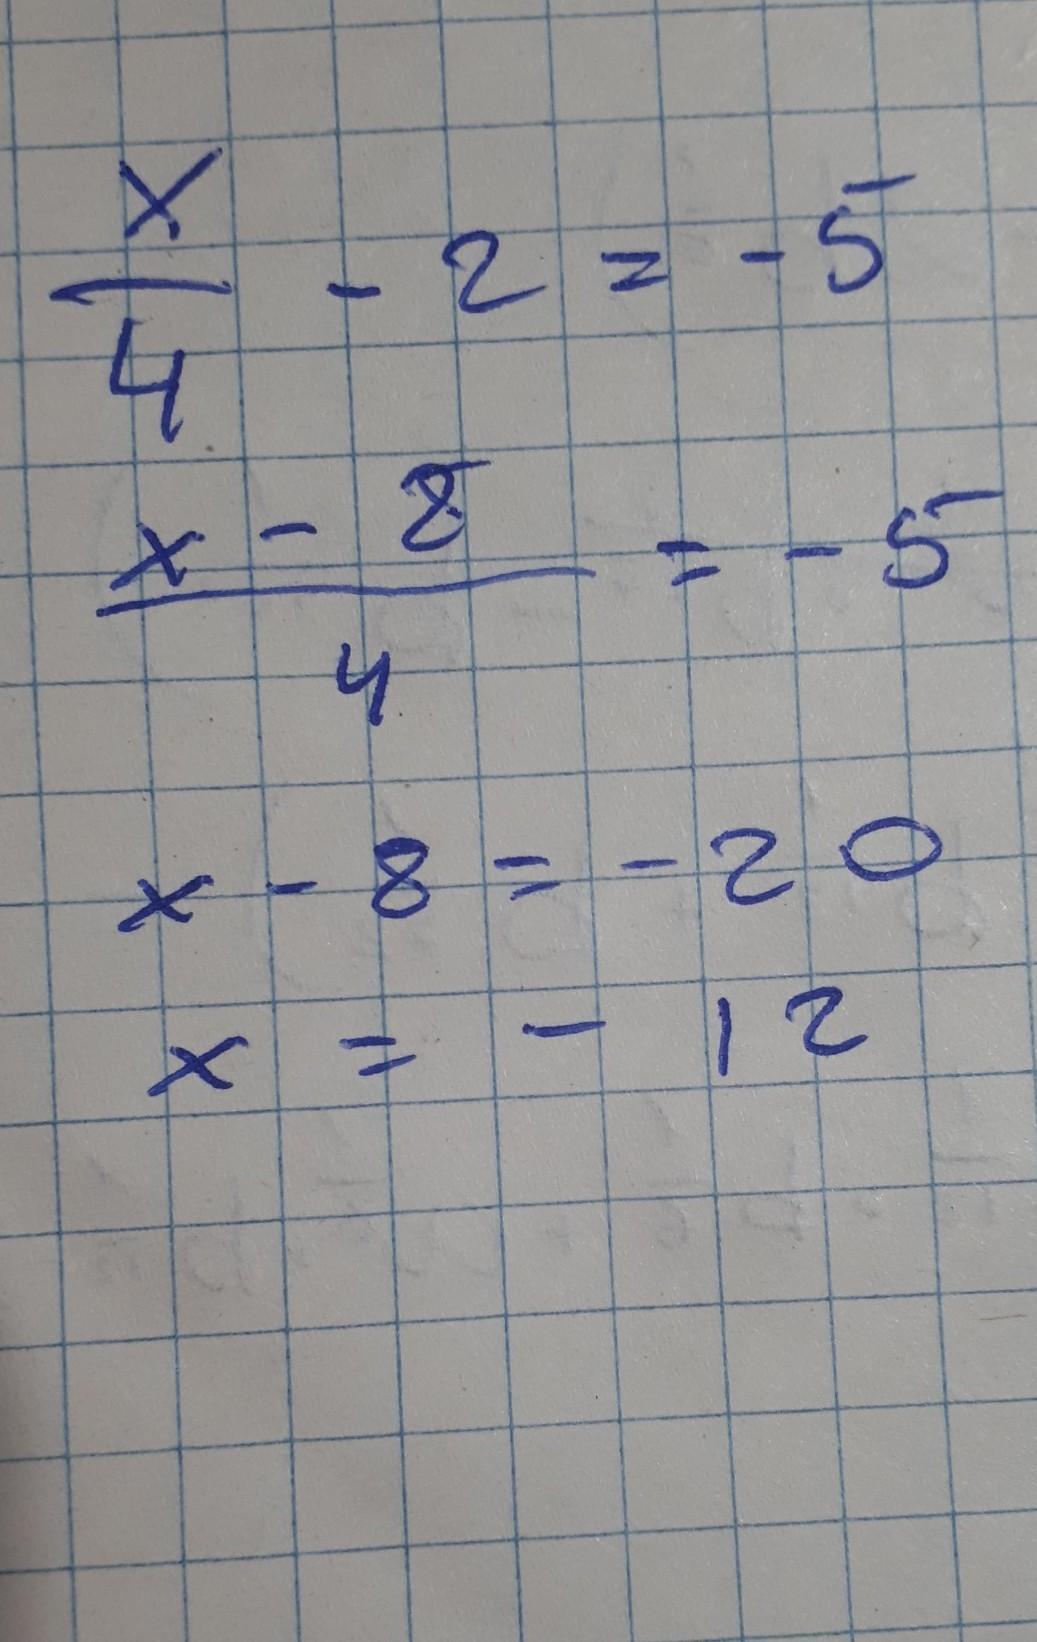 x/4 - 2 = -5
(x - 8)/4 = -5
x - 8 = -20
x = -12